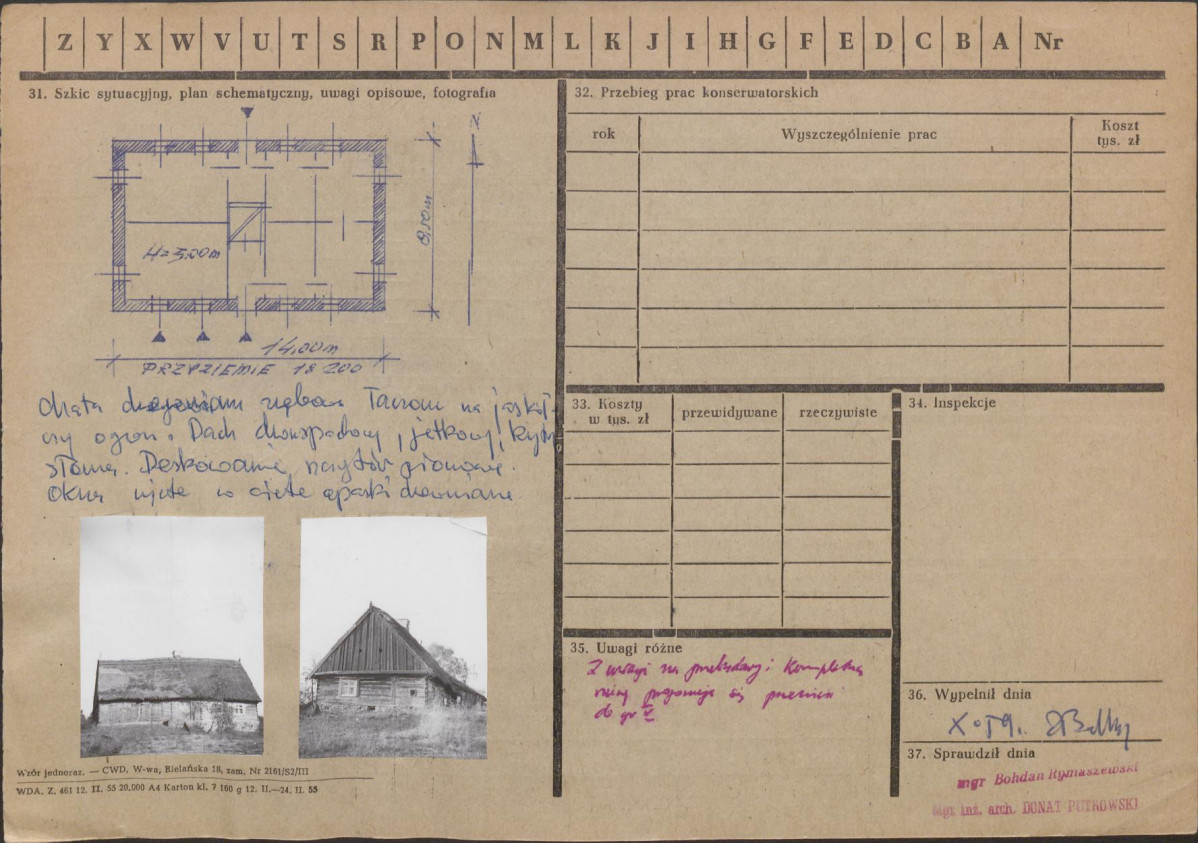 Z Y X W V U T S R P O N M L K J I H G F E D C B A Nr
31. Szkic sytuacyjny, plan schematyczny, uwagi opisowe, fotografia
N
8,50m
H=3,00m
14.00m
PRZYZIEMIE 1:200
Chata zrębowa łączona na jaskół-
czy ogon. Dach dwuspadowy, jętkowy, kryty
słomą. Deskowanie szczytów pionowe.
Okna ujęte w opaski drewniane.
Wzór jednoraz. — CWD, W-wa, Bielańska 18, zam. Nr 2161/S2/III
WDA. Z. 461 12. II. 55 20.000 A4 Karton kl. 7 160 g 12. II.—24. II. 55
32. Przebieg prac konserwatorskich
rok
Wyszczególnienie prac
Koszt
tys. zł
33. Koszty
w tys. zł
przewidywane
rzeczywiste
34. Inspekcje
35. Uwagi różne
Z uwagi na przebudowy i kompletną
się
do gr V
36. Wypełnił dnia
X.59.
37. Sprawdził dnia
mgr Bohdan Rymaszewski
mgr inż. arch. DONAT PUTKOWSKI